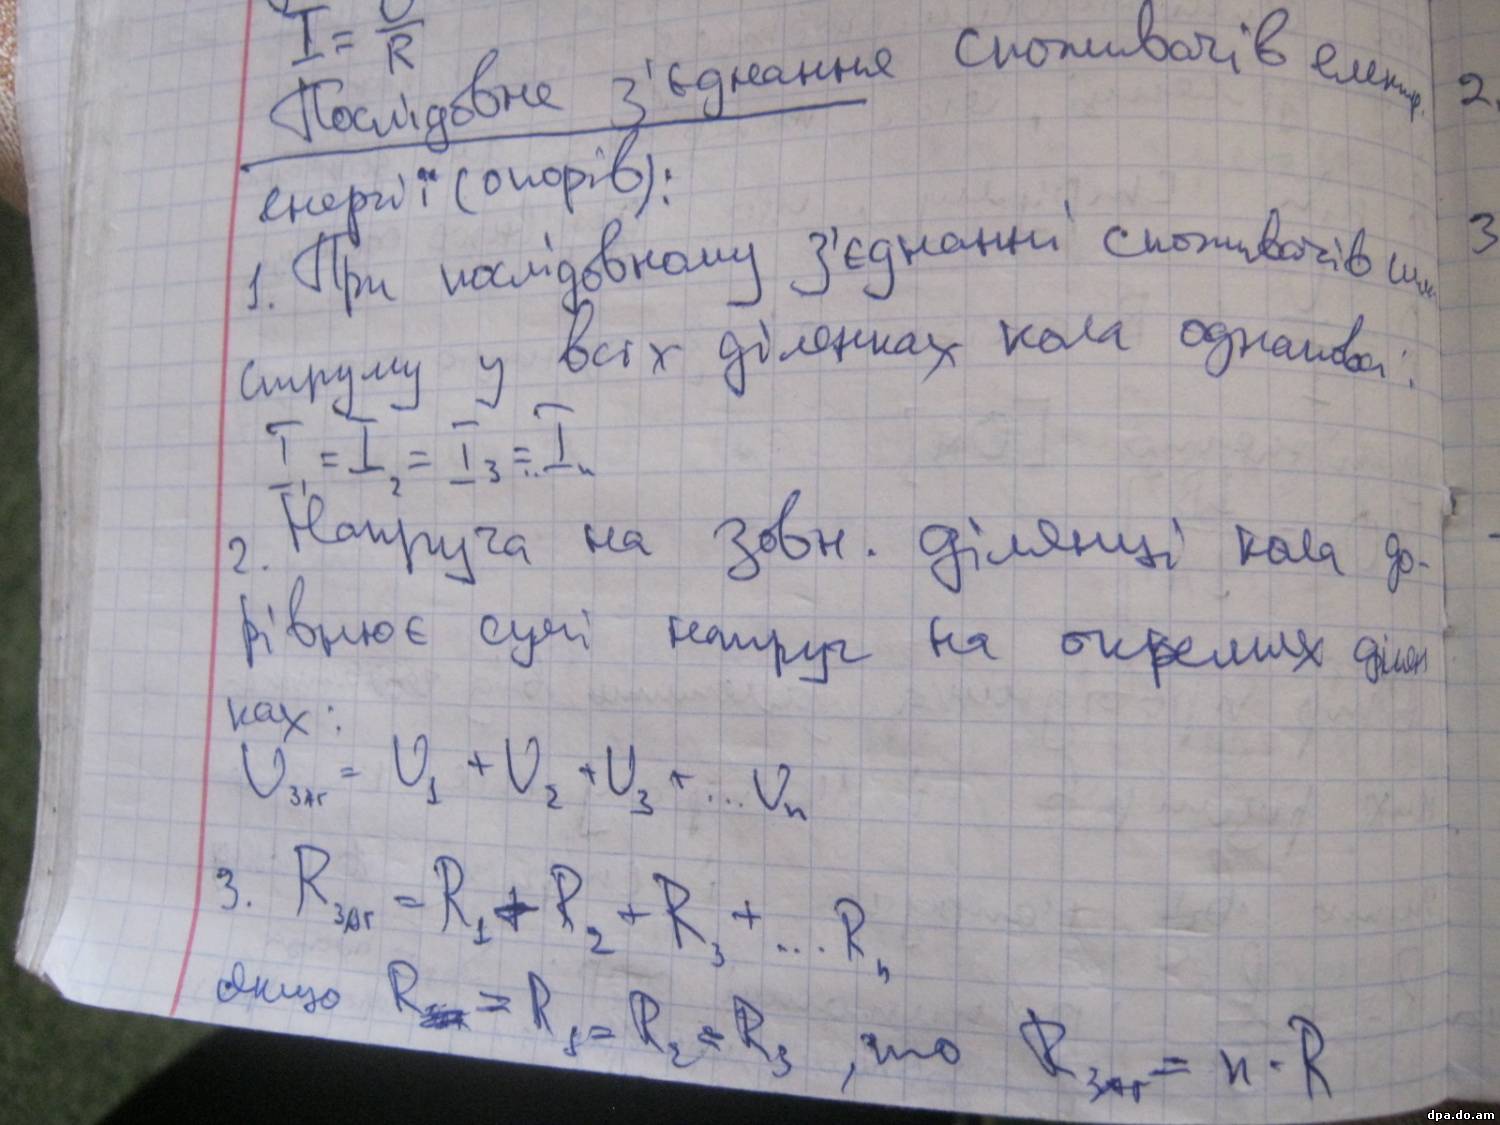 I = U/R
Послідовне з'єднання споживачів електр.
енергії (опорів):
1. При послідовному з'єднанні споживачів
струму у всіх ділянках кола однакова:
I₁ = I₂ = I₃ = ... Iₙ
2. Напруга на зовн. ділянці кола до-
рівнює сумі напруг на окремих ділян
ках:
Uзаг = U₁ + U₂ + U₃ + ... Uₙ
3. Rзаг = R₁ + R₂ + R₃ + ... Rₙ
якщо R = R₁ = R₂ = R₃, то Rзаг = n · R
2.
3
dpa.do.am